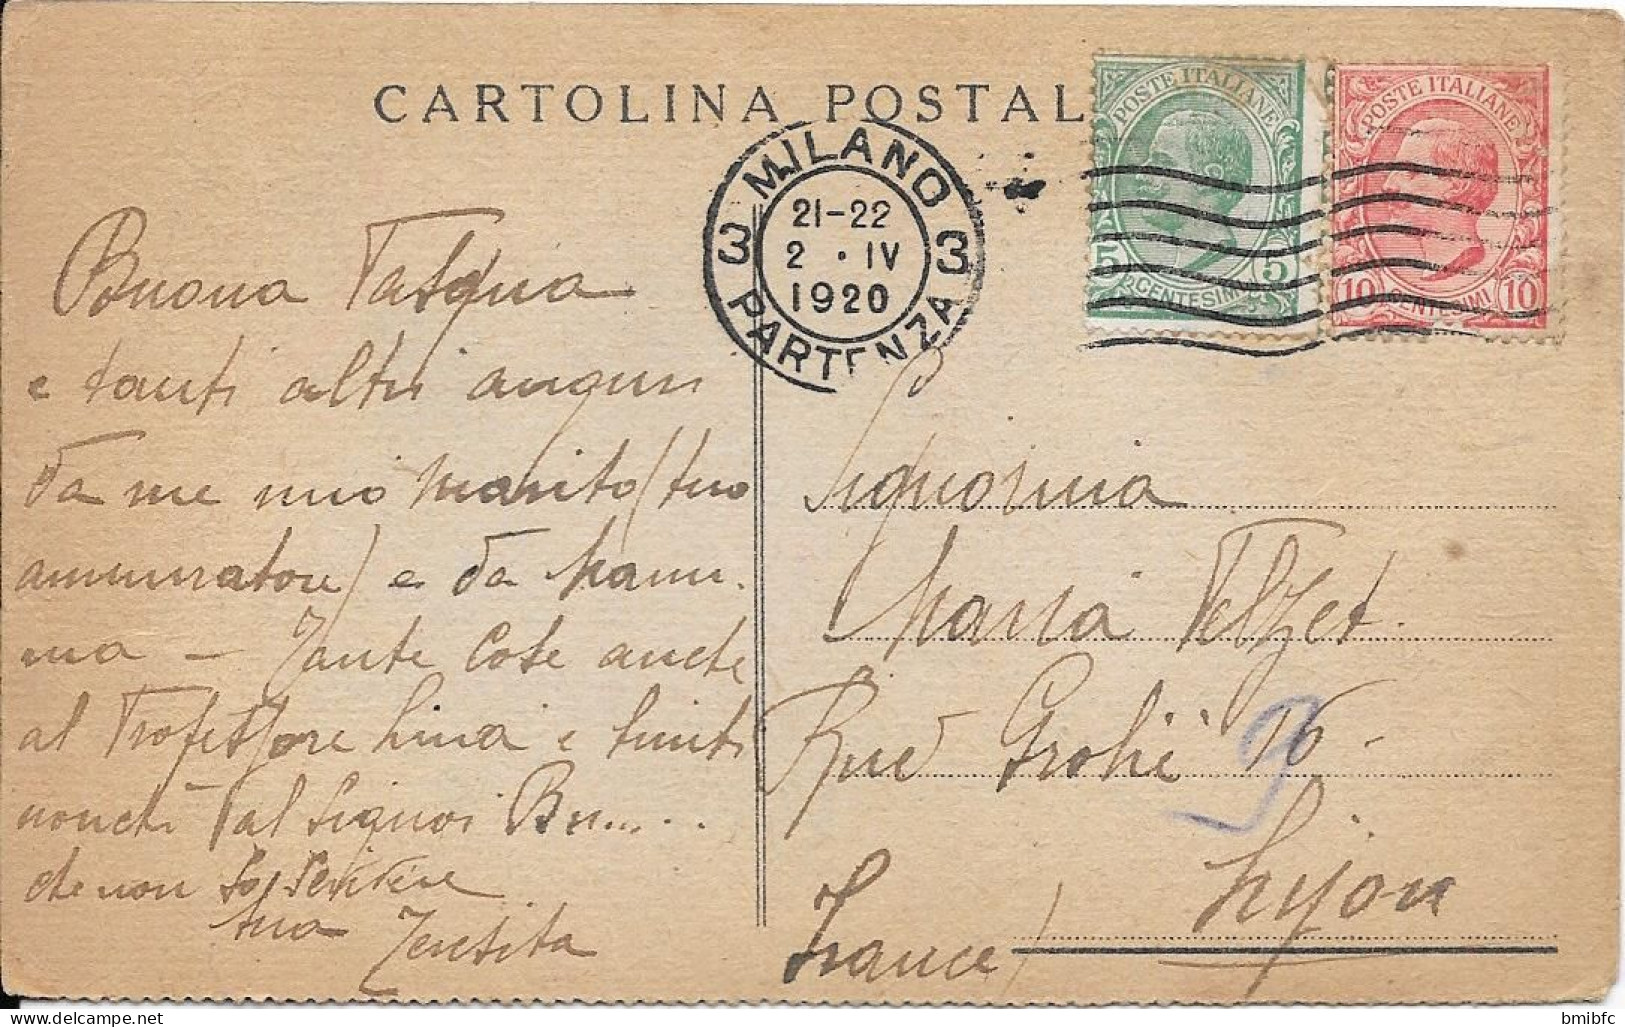 CARTOLINA POSTAL
POSTE ITALIANE
5 5
CENTESIMI
POSTE ITALIANE
10 10
CENTESIMI
MILANO
3 3
21-22
2 · IV
1920
PARTENZA
Buona Pasqua
e tanti altri auguri
da me mio marito (tuo
ammiratore) e da mam-
ma – Tante cose anche
al Professore Lina e
nonchè al Signor Bu.....
che non so scrivere
tua Teresita
Signorina
Maria Pelzet.
Rue Grolié 16 -
Lijon
(France)
bmibfc